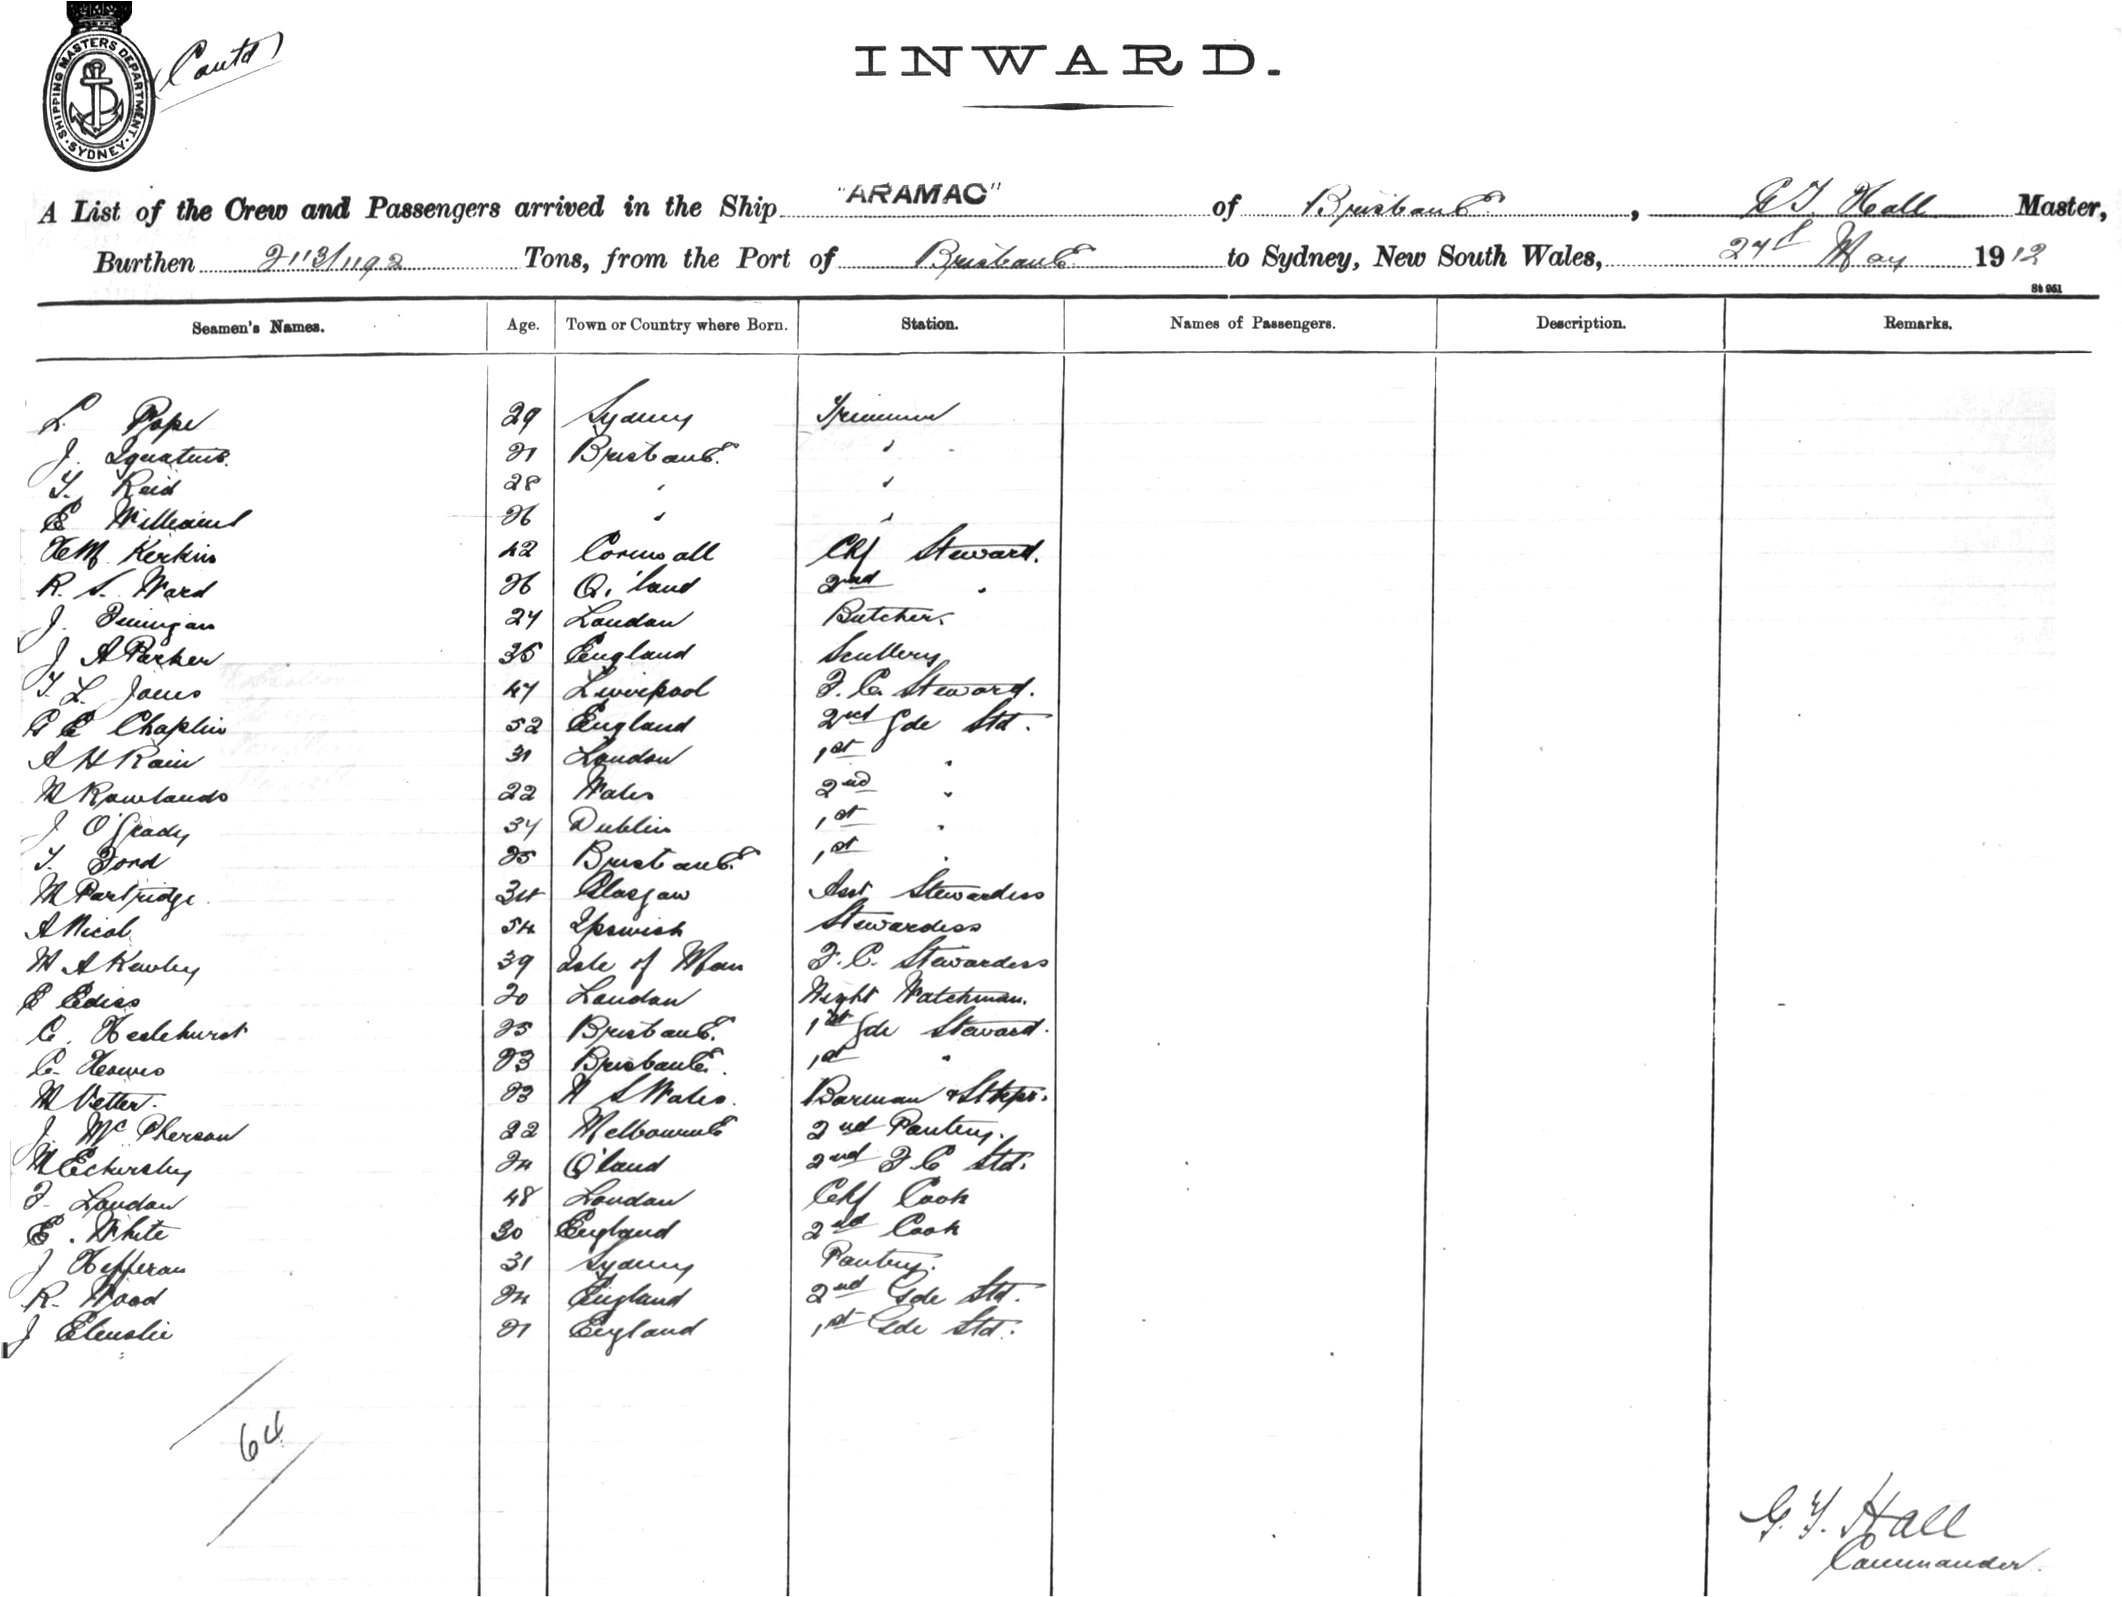 SHIPPING MASTERS DEPARTMENT. SYDNEY.
(Contd)
INWARD.
A List of the Crew and Passengers arrived in the Ship "ARAMAC" of Brisbane, G T. Hall Master,
Burthen 2113/1192 Tons, from the Port of Brisbane to Sydney, New South Wales, 27th May 1912
St 961
Seamen's Names. Age. Town or Country where Born. Station. Names of Passengers. Description. Remarks.
L. Pope 29 Sydney Trimmer
J. Ignatius. 21 Brisbane. "
T. Reid 28 " "
E Williams 26 " "
H M Kerkin 42 Cornwall Chf Steward.
R. S. Ward 26 Q'land 2nd "
J. Finnigan 27 London Butcher.
J A Parker 35 England Scullery
T. L. Jones 47 Liverpool F. C. Steward.
G E Chaplin 52 England 2nd Gde Std.
A H Rain 31 London 1st "
M Rowlands 22 Wales 2nd "
J O'Grady 37 Dublin 1st "
T. Ford 25 Brisbane. 1st "
M Partridge 34 Glasgow Asst Stewardess
A Nicol 54 Ipswich Stewardess
M A Kewley 39 Isle of Man F. C. Stewardess
E Ediss 20 London Night Watchman.
C. Heslehurst 25 Brisbane. 1st Gde Steward.
C. Howes 23 Brisbane. 1st "
M Vetter. 23 N S Wales. Barman & Stkpr.
J. McPherson 22 Melbourne 2nd Pantry.
M Eckersley 24 Q'land 2nd F C Std.
F. London 48 London Chf Cook
E. White 30 England 2nd Cook
J Hefferan 31 Sydney Pantry.
R. Wood 24 England 2nd Gde Std.
J 21 England 1st Gde Std.
64
G. T. Hall
Commander.